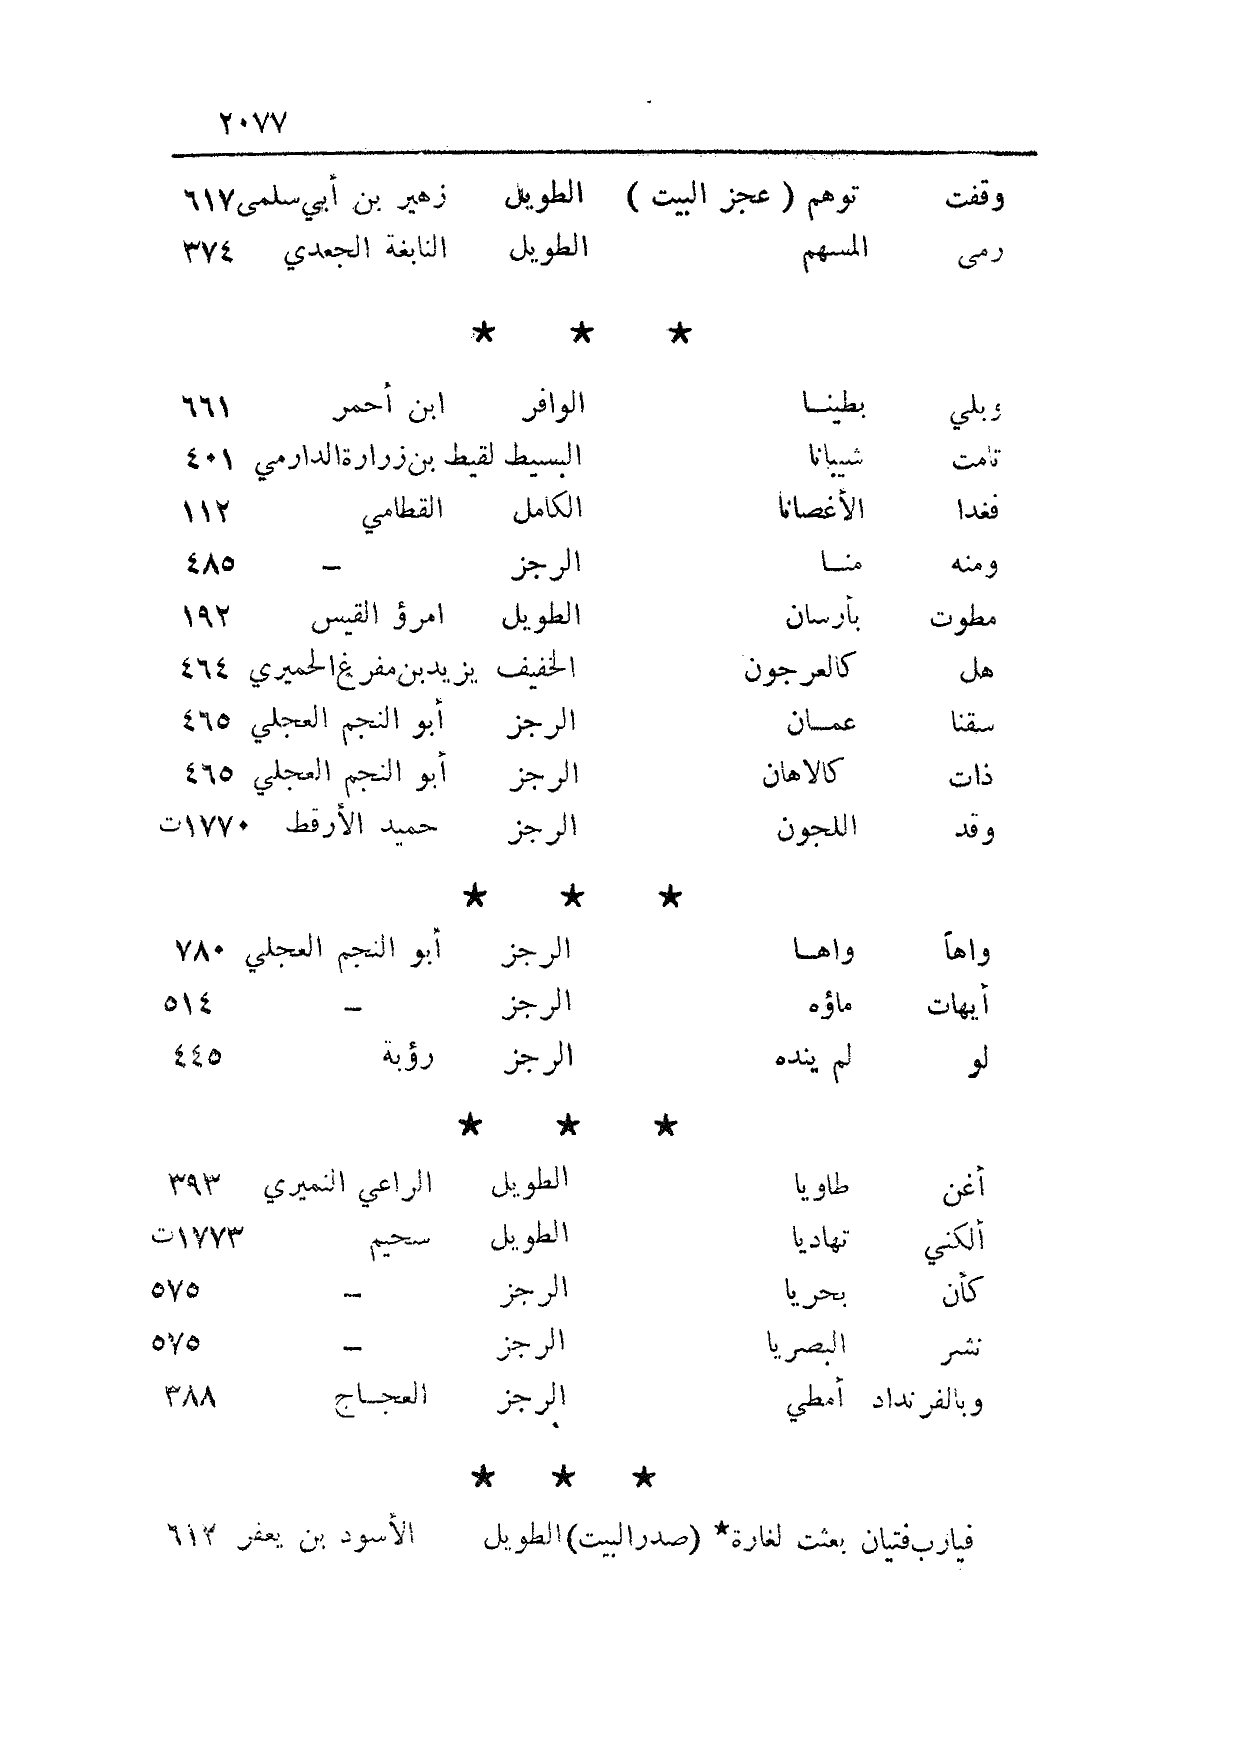 ٢٠٧٧
وقفت توهم ( عجز البيت ) الطويل زهير بن أبي سلمى ٦١٧
رمى المسهم الطويل النابغة الجعدي ٣٧٤
★ ★ ★
وبلي بطينــا الوافر ابن أحمر ٦٦١
تامت شيبانا البسيط لقيط بن زرارة الدارمي ٤٠١
فغدا الأغصانا الكامل القطامي ١١٢
ومنه منــا الرجز – ٤٨٥
مطوت بأرسان الطويل امرؤ القيس ١٩٢
هل كالعرجون الخفيف يزيد بن مفرغ الحميري ٤٦٤
سقنا عمــان الرجز أبو النجم العجلي ٤٦٥
ذات كالاهان الرجز أبو النجم العجلي ٤٦٥
وقد اللجون الرجز حميد الأرقط ١٧٧٠ت
★ ★ ★
واهاً واهــا الرجز أبو النجم العجلي ٧٨٠
أيهات ماؤه الرجز – ٥١٤
لو لم ينده الرجز رؤبة ٤٤٥
★ ★ ★
أغن طاويا الطويل الراعي النميري ٣٩٣
ألكني تهاديا الطويل سحيم ١٧٧٣ت
كأن بحريا الرجز – ٥٧٥
نشر البصريا الرجز – ٥٧٥
وبالفرنداد أمطي الرجز العجــاج ٣٨٨
★ ★ ★
فيارب فتيان بعثت لغارة* (صدر البيت) الطويل الأسود بن يعفر ٦١٢